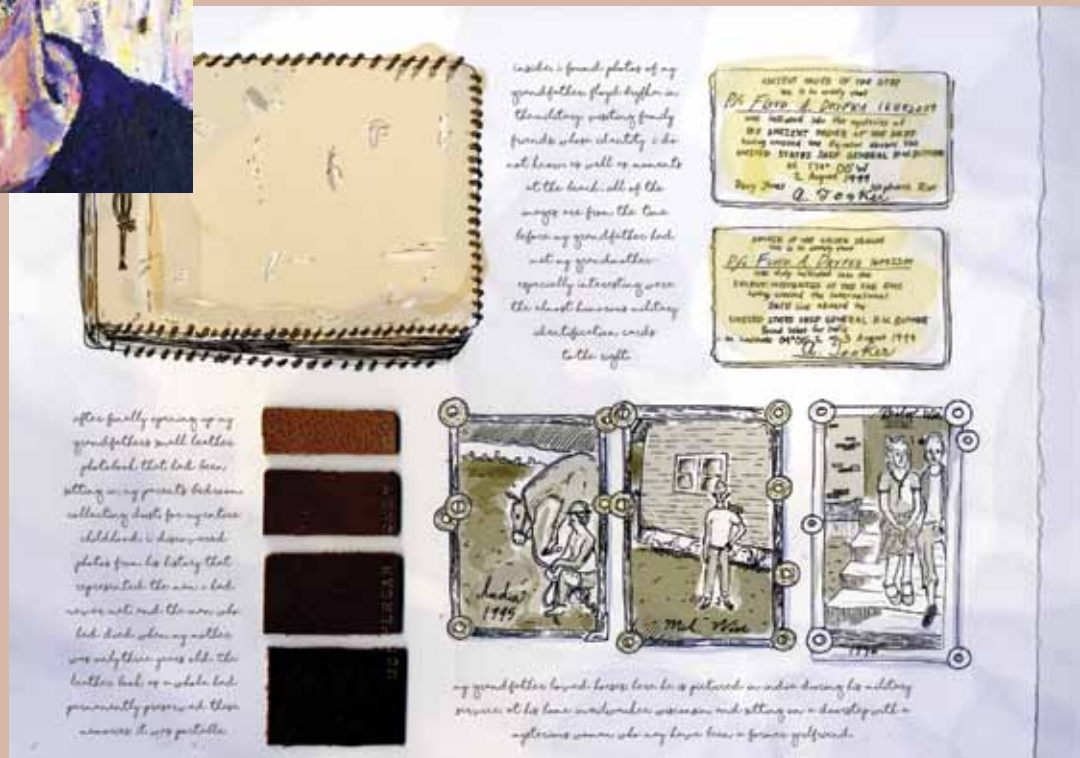 inside i found photos of my
grandfather floyd drefka in
the military visiting family
friends whose identity i do
not know as well as moments
at the beach. all of the
images are from the time
before my grandfather had
met my grandmother
especially interesting were
the almost humorous military
identification cards
to the right.
ANCIENT ORDER OF THE DEEP
this is to certify that
Pfc FLOYD A DREFKA
was initiated into the mysteries of
THE ANCIENT ORDER OF THE DEEP
having crossed the Equator aboard the
UNITED STATES SHIP GENERAL
2 August 1944
Davy Jones Neptunus Rex
ORDER OF THE GOLDEN DRAGON
this is to certify that
Pfc FLOYD A. DREFKA
was duly initiated into the
of the FAR EAST
having crossed the International
Date Line aboard the
UNITED STATES SHIP GENERAL
August 1944
after finally opening up my
grandfathers small leather
photobook that had been
sitting in my parents bedroom
collecting dust for my entire
childhood i discovered
photos from his history that
represented the man i had
never met and the man who
had died when my mother
was only three years old. the
leather book as a whole had
permanently preserved these
memories it was portable
India
1945
Mil Wisc
my grandfather loved horses here he is pictured in india during his military
service at his home in milwaukee wisconsin and sitting on a doorstep with a
mysterious woman who may have been a former girlfriend.